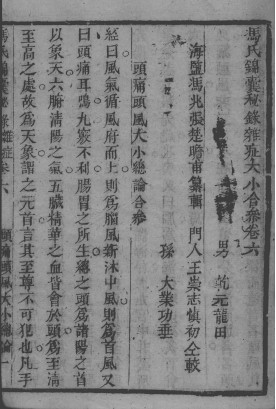 馮氏錦囊秘錄雜症大小合參卷六
海鹽馮兆張楚瞻甫纂輯　門人王崇志慎初仝較
男　乾元龍田
孫　大業功垂
頭痛頭風大小總論合參
經曰風氣循風府而上則為腦風新沐中風則為首風又
曰頭痛耳鳴九竅不利腸胃之所生總之頭為諸陽之首
以象天六腑清陽之氣五臟精華之血皆會於頭為至清
至高之處故為天象謂之元首言其至尊不可犯也凡手
馮氏錦囊秘錄雜症卷六
頭痛頭風大小總論　一